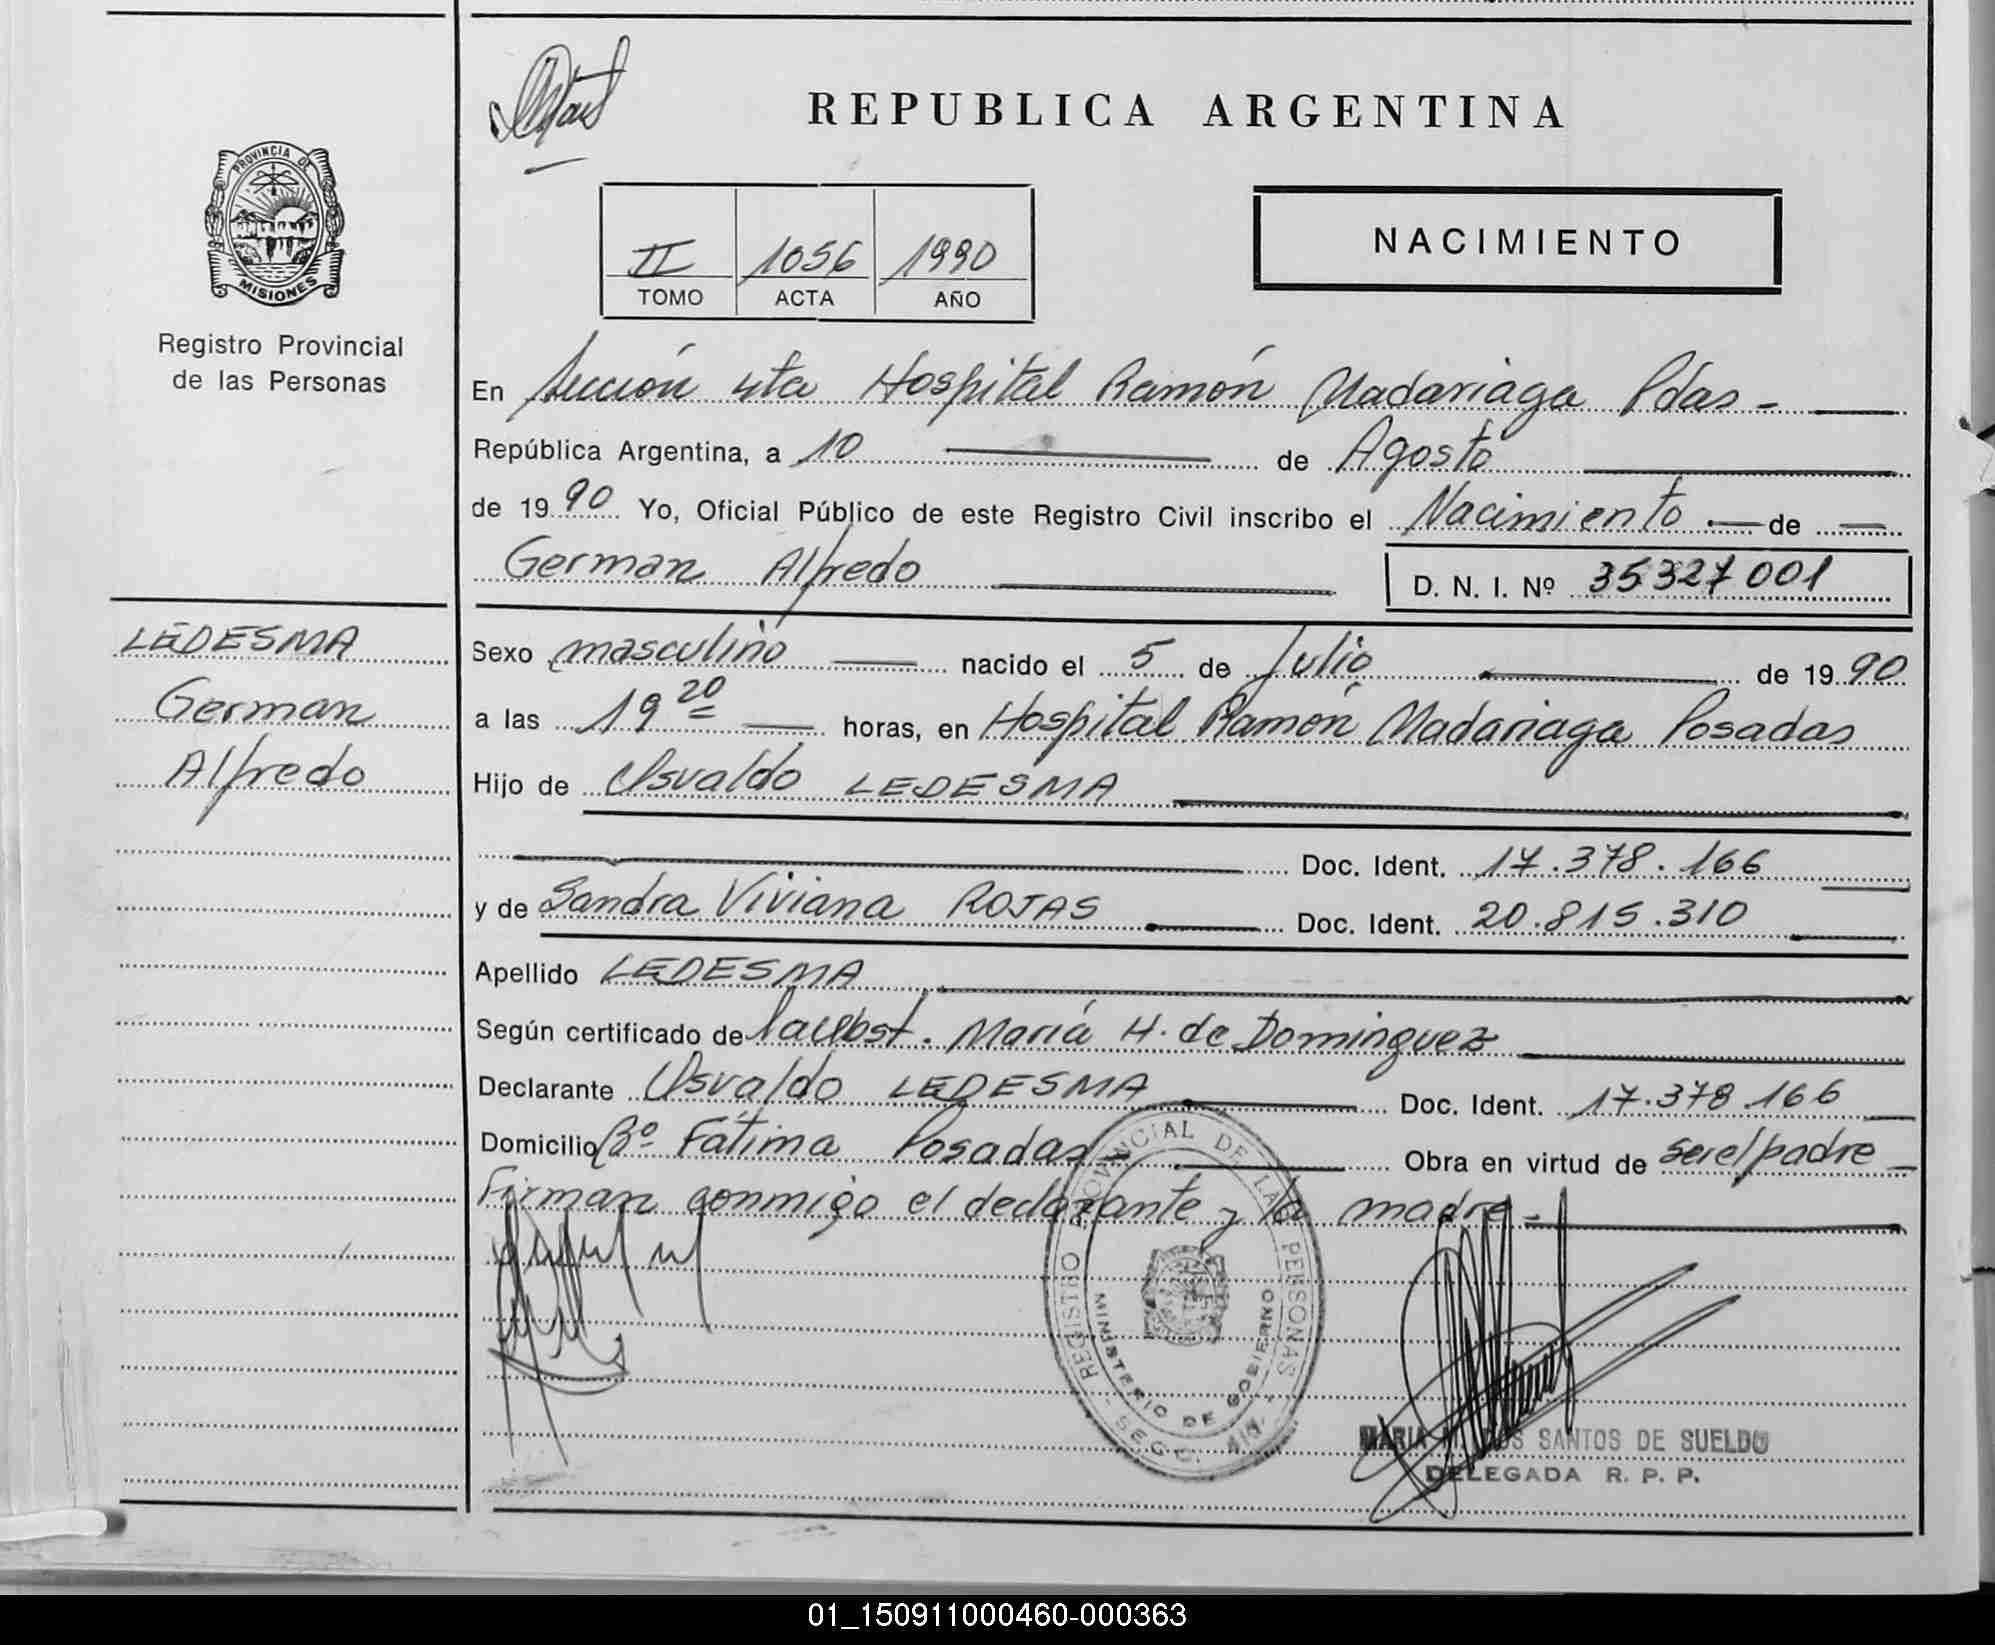 REPUBLICA ARGENTINA
PROVINCIA DE
MISIONES
Registro Provincial
de las Personas
II 1056 1990
TOMO ACTA AÑO
NACIMIENTO
En Sección 4ta Hospital Ramón Madariaga Pdas -
República Argentina, a 10 de Agosto
de 1990 Yo, Oficial Público de este Registro Civil inscribo el Nacimiento de
German Alfredo D. N. I. Nº 35327001
LEDESMA
German
Alfredo
Sexo masculino nacido el 5 de Julio de 1990
a las 19 20 horas, en Hospital Ramón Madariaga Posadas
Hijo de Osvaldo LEDESMA
Doc. Ident. 17.378.166
y de Sandra Viviana ROJAS Doc. Ident. 20.815.310
Apellido LEDESMA
Según certificado de María H. de Dominguez
Declarante Osvaldo LEDESMA Doc. Ident. 17.378.166
Domicilio Bº Fátima Posadas - Obra en virtud de ser el padre
Firman conmigo el declarante y la madre -
REGISTRO PROVINCIAL DE LAS PERSONAS
MINISTERIO DE GOBIERNO
MARIA DOS SANTOS DE SUELDO
DELEGADA R. P. P.
01_150911000460-000363